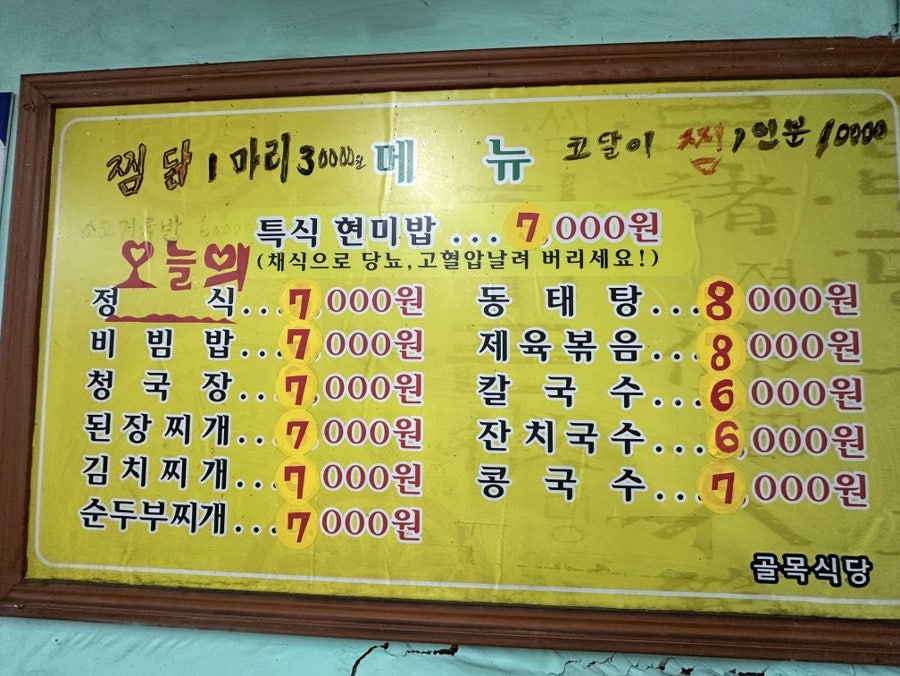 찜닭 1마리 30000원 메뉴 코달이 찜 1인분 10000
특식 현미밥 ... 7,000원
오늘의 (채식으로 당뇨,고혈압날려 버리세요!)
정식...7,000원 동태탕...8,000원
비빔밥...7,000원 제육볶음...8,000원
청국장...7,000원 칼국수...6,000원
된장찌개...7,000원 잔치국수...6,000원
김치찌개...7,000원 콩국수...7,000원
순두부찌개...7,000원
골목식당